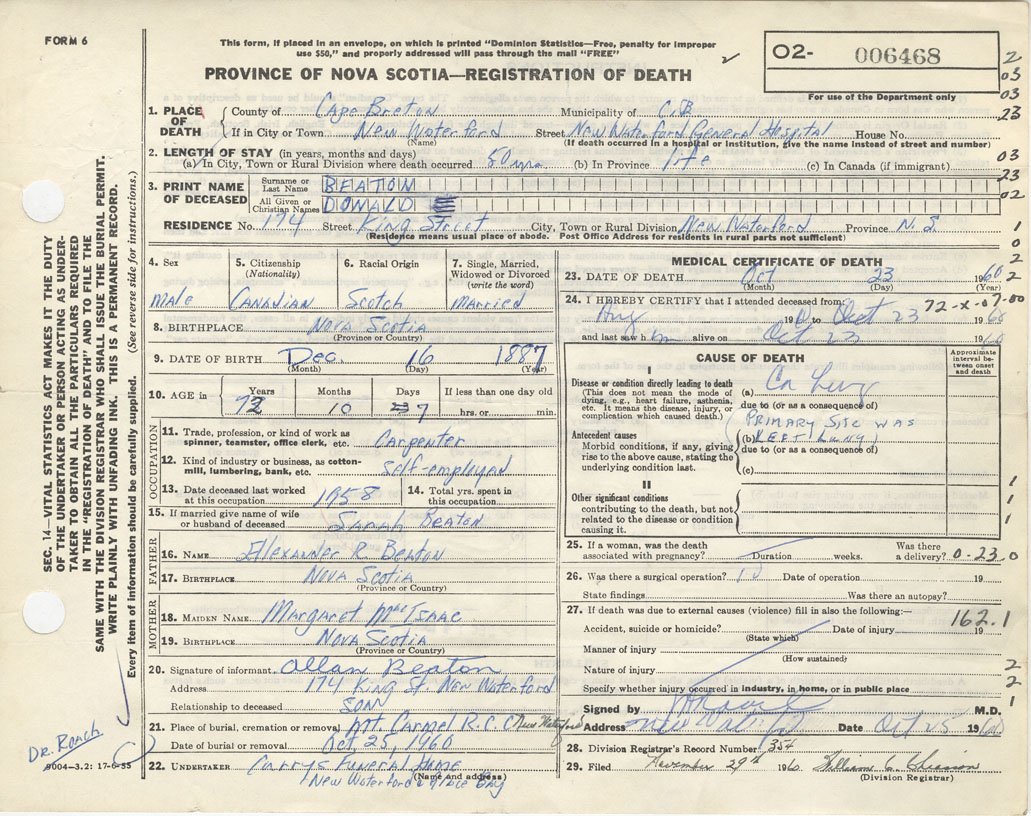 FORM 6
This form, if placed in an envelope, on which is printed "Dominion Statistics—Free, penalty for improper
use $50," and properly addressed will pass through the mail "FREE"
PROVINCE OF NOVA SCOTIA—REGISTRATION OF DEATH
02- 006468
For use of the Department only
2
03
03
23
03
23
02
1
0
2
2
2
1. PLACE OF DEATH
County of Cape Breton Municipality of C.B
If in City or Town New Waterford Street New Waterford General Hospital House No.
(Name) (If death occurred in a hospital or institution, give the name instead of street and number)
2. LENGTH OF STAY (in years, months and days)
(a) In City, Town or Rural Division where death occurred 50 yrs. (b) In Province life (c) In Canada (if immigrant)
3. PRINT NAME OF DECEASED
Surname or Last Name BEATON
All Given or Christian Names DONALD
RESIDENCE No. 174 Street King Street City, Town or Rural Division New Waterford Province N.S.
(Residence means usual place of abode. Post Office Address for residents in rural parts not sufficient)
4. Sex Male
5. Citizenship (Nationality) Canadian
6. Racial Origin Scotch
7. Single, Married, Widowed or Divorced (write the word) Married
8. BIRTHPLACE Nova Scotia
(Province or Country)
9. DATE OF BIRTH Dec. 16 1887
(Month) (Day) (Year)
10. AGE in Years 72 Months 10 Days 7 If less than one day old hrs. or min.
OCCUPATION
11. Trade, profession, or kind of work as spinner, teamster, office clerk, etc. Carpenter
12. Kind of industry or business, as cotton-mill, lumbering, bank, etc. self-employed
13. Date deceased last worked at this occupation 1958 14. Total yrs. spent in this occupation
15. If married give name of wife or husband of deceased Sarah Beaton
FATHER
16. NAME Alexander R. Beaton
17. BIRTHPLACE Nova Scotia
(Province or Country)
MOTHER
18. MAIDEN NAME Margaret MacIsaac
19. BIRTHPLACE Nova Scotia
(Province or Country)
20. Signature of informant Allan Beaton
Address 174 King St. New Waterford
Relationship to deceased SON
21. Place of burial, cremation or removal Mt Carmel R.C.C New Waterford
Date of burial or removal Oct, 25, 1960
22. UNDERTAKER Currys Funeral Home
(Name and address)
New Waterford & Glace Bay
MEDICAL CERTIFICATE OF DEATH
23. DATE OF DEATH Oct 23 1960
(Month) (Day) (Year)
24. I HEREBY CERTIFY that I attended deceased from:
72-X-07-00
Aug 19 to Oct 23 1960
and last saw him alive on Oct 23 1960
CAUSE OF DEATH
Approximate interval between onset and death
I
Disease or condition directly leading to death
(This does not mean the mode of dying, e.g., heart failure, asthenia, etc. It means the disease, injury, or complication which caused death.)
(a) Ca Lung
due to (or as a consequence of)
(PRIMARY SITE WAS
(b) LEFT LUNG)
due to (or as a consequence of)
(c)
Antecedent causes
Morbid conditions, if any, giving rise to the above cause, stating the underlying condition last.
II
Other significant conditions
contributing to the death, but not related to the disease or condition causing it.
1
1
25. If a woman, was the death associated with pregnancy? Duration weeks. Was there a delivery? 0-23 0
26. Was there a surgical operation? Date of operation 19
State findings Was there an autopsy?
27. If death was due to external causes (violence) fill in also the following:— 162.1
Accident, suicide or homicide? Date of injury 19
(State which)
Manner of injury
(How sustained)
Nature of injury
2
2
1
Specify whether injury occurred in industry, in home, or in public place
Signed by M.D.
Address New Waterford Date Oct 25 1960
28. Division Registrar's Record Number 354
29. Filed November 29th 1960
(Division Registrar)
SEC. 14—VITAL STATISTICS ACT MAKES IT THE DUTY
OF THE UNDERTAKER OR PERSON ACTING AS UNDER-
TAKER TO OBTAIN ALL THE PARTICULARS REQUIRED
IN THE "REGISTRATION OF DEATH" AND TO FILE THE
SAME WITH THE DIVISION REGISTRAR WHO SHALL ISSUE THE BURIAL PERMIT.
WRITE PLAINLY WITH UNFADING INK. THIS IS A PERMANENT RECORD.
Every item of information should be carefully supplied. (See reverse side for instructions.)
DR. ROACH
9004—3.2: 17-6-55